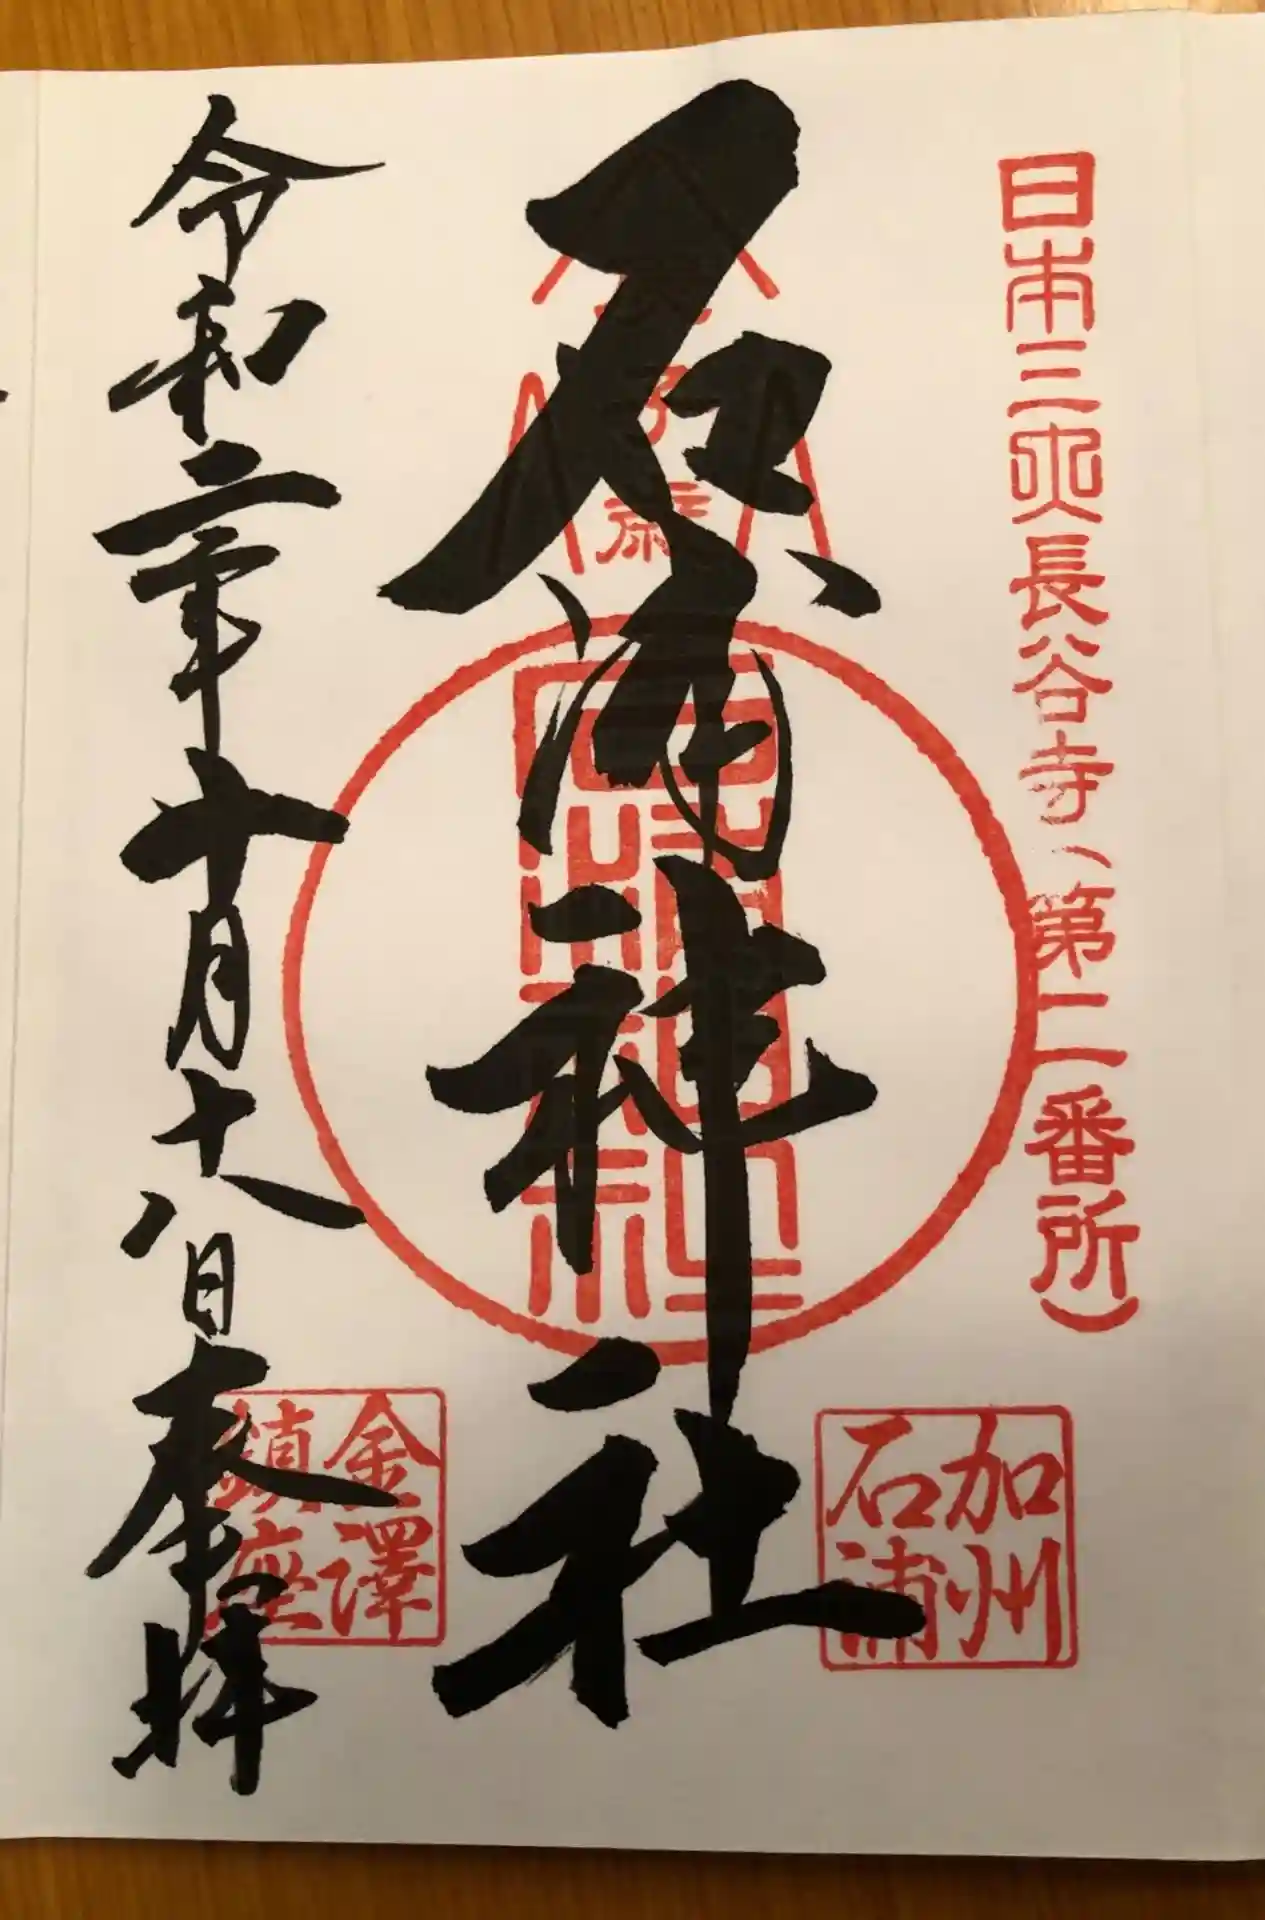 日本三大長谷寺(第二番所)
加州
石浦
石浦神社
石浦神社
令和二年十月十八日奉拝
金澤
鎮座